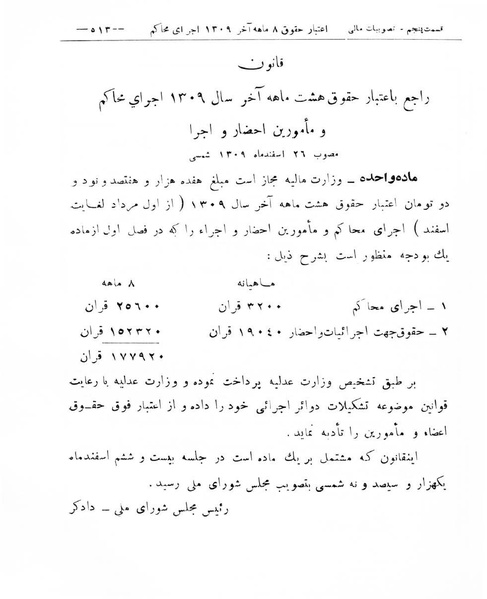 قسمت پنجم - تصویبات مالی    اعتبار حقوق ۸ ماهه آخر ۱۳۰۹ اجرای محاکم    —۵۱۳—
قانون
راجع باعتبار حقوق هشت ماهه آخر سال ۱۳۰۹ اجرای محاکم
و مأمورین احضار و اجرا
مصوب ۲۶ اسفندماه ۱۳۰۹ شمسی
ماده واحده – وزارت مالیه مجاز است مبلغ هفده هزار و هفتصد و نود و
دو تومان اعتبار حقوق هشت ماهه آخر سال ۱۳۰۹ ( از اول مرداد لغایت
اسفند ) اجرای محاکم و مأمورین احضار و اجراء را که در فصل اول ازماده
یك بودجه منظور است بشرح ذیل :
ماهیانه    ۸ ماهه
۱ – اجرای محاکم    ۳۲۰۰ قران    ۲۵۶۰۰ قران
۲ – حقوق جهت اجرائیات واحضار ۱۹۰۴۰ قران    ۱۵۲۳۲۰ قران
۱۷۷۹۲۰ قران
بر طبق تشخیص وزارت عدلیه پرداخت نموده و وزارت عدلیه با رعایت
قوانین موضوعه تشکیلات دوائر اجرائی خود را داده و از اعتبار فوق حقوق
اعضاء و مأمورین را تأدیه نماید .
اینقانون که مشتمل بر یك ماده است در جلسه بیست و ششم اسفندماه
یکهزار و سیصد و نه شمسی بتصویب مجلس شورای ملی رسید .
رئیس مجلس شورای ملی – دادگر